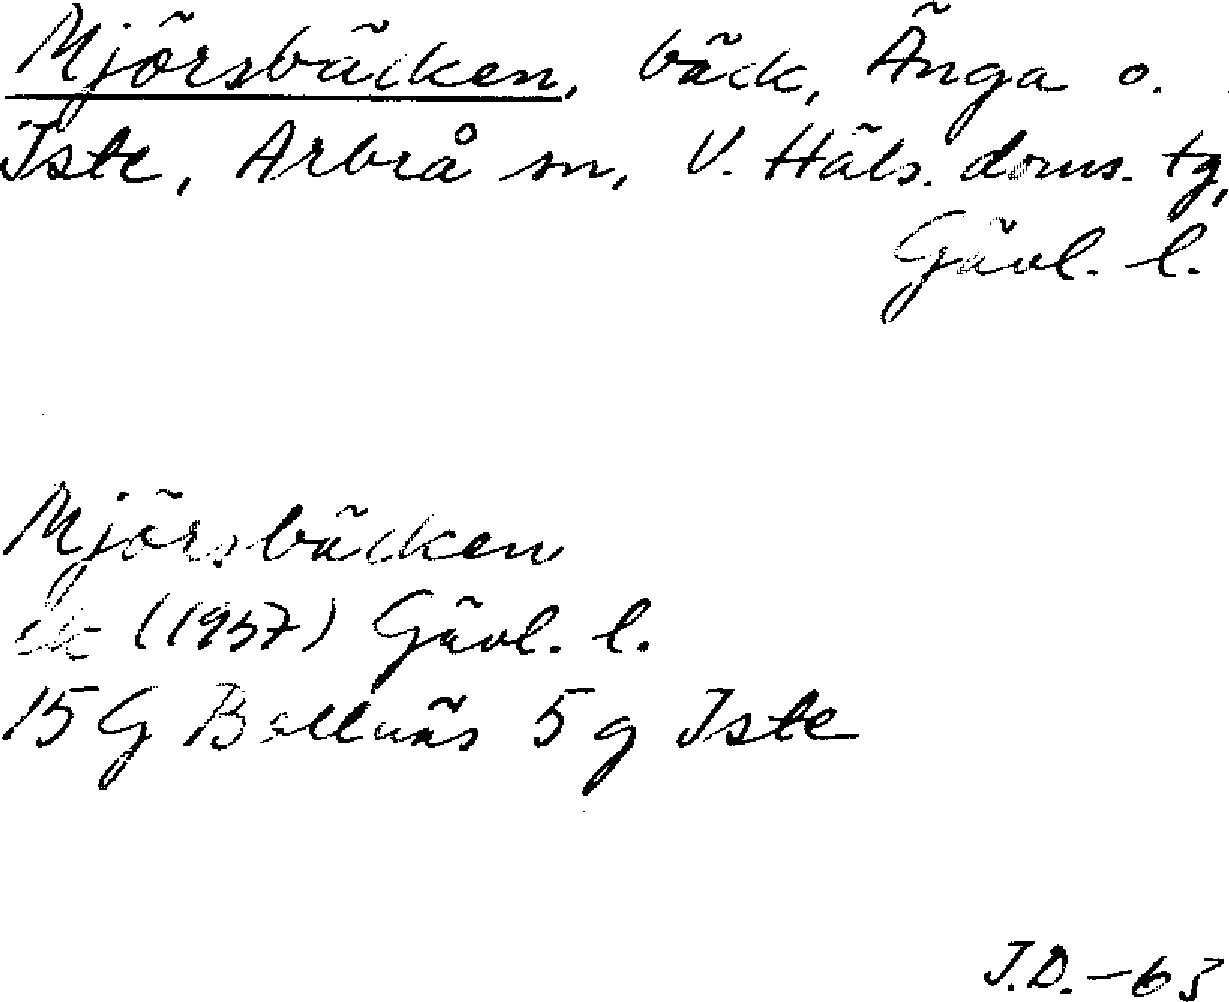 Mjörsbäcken, bäck, Änga o.
Iste, Arbrå sn, V. Häls. doms. tg,
Gävl. l.
Mjörsbäcken
ek (1957) Gävl. l.
15G Bollnäs 5g Iste
J.D.-63